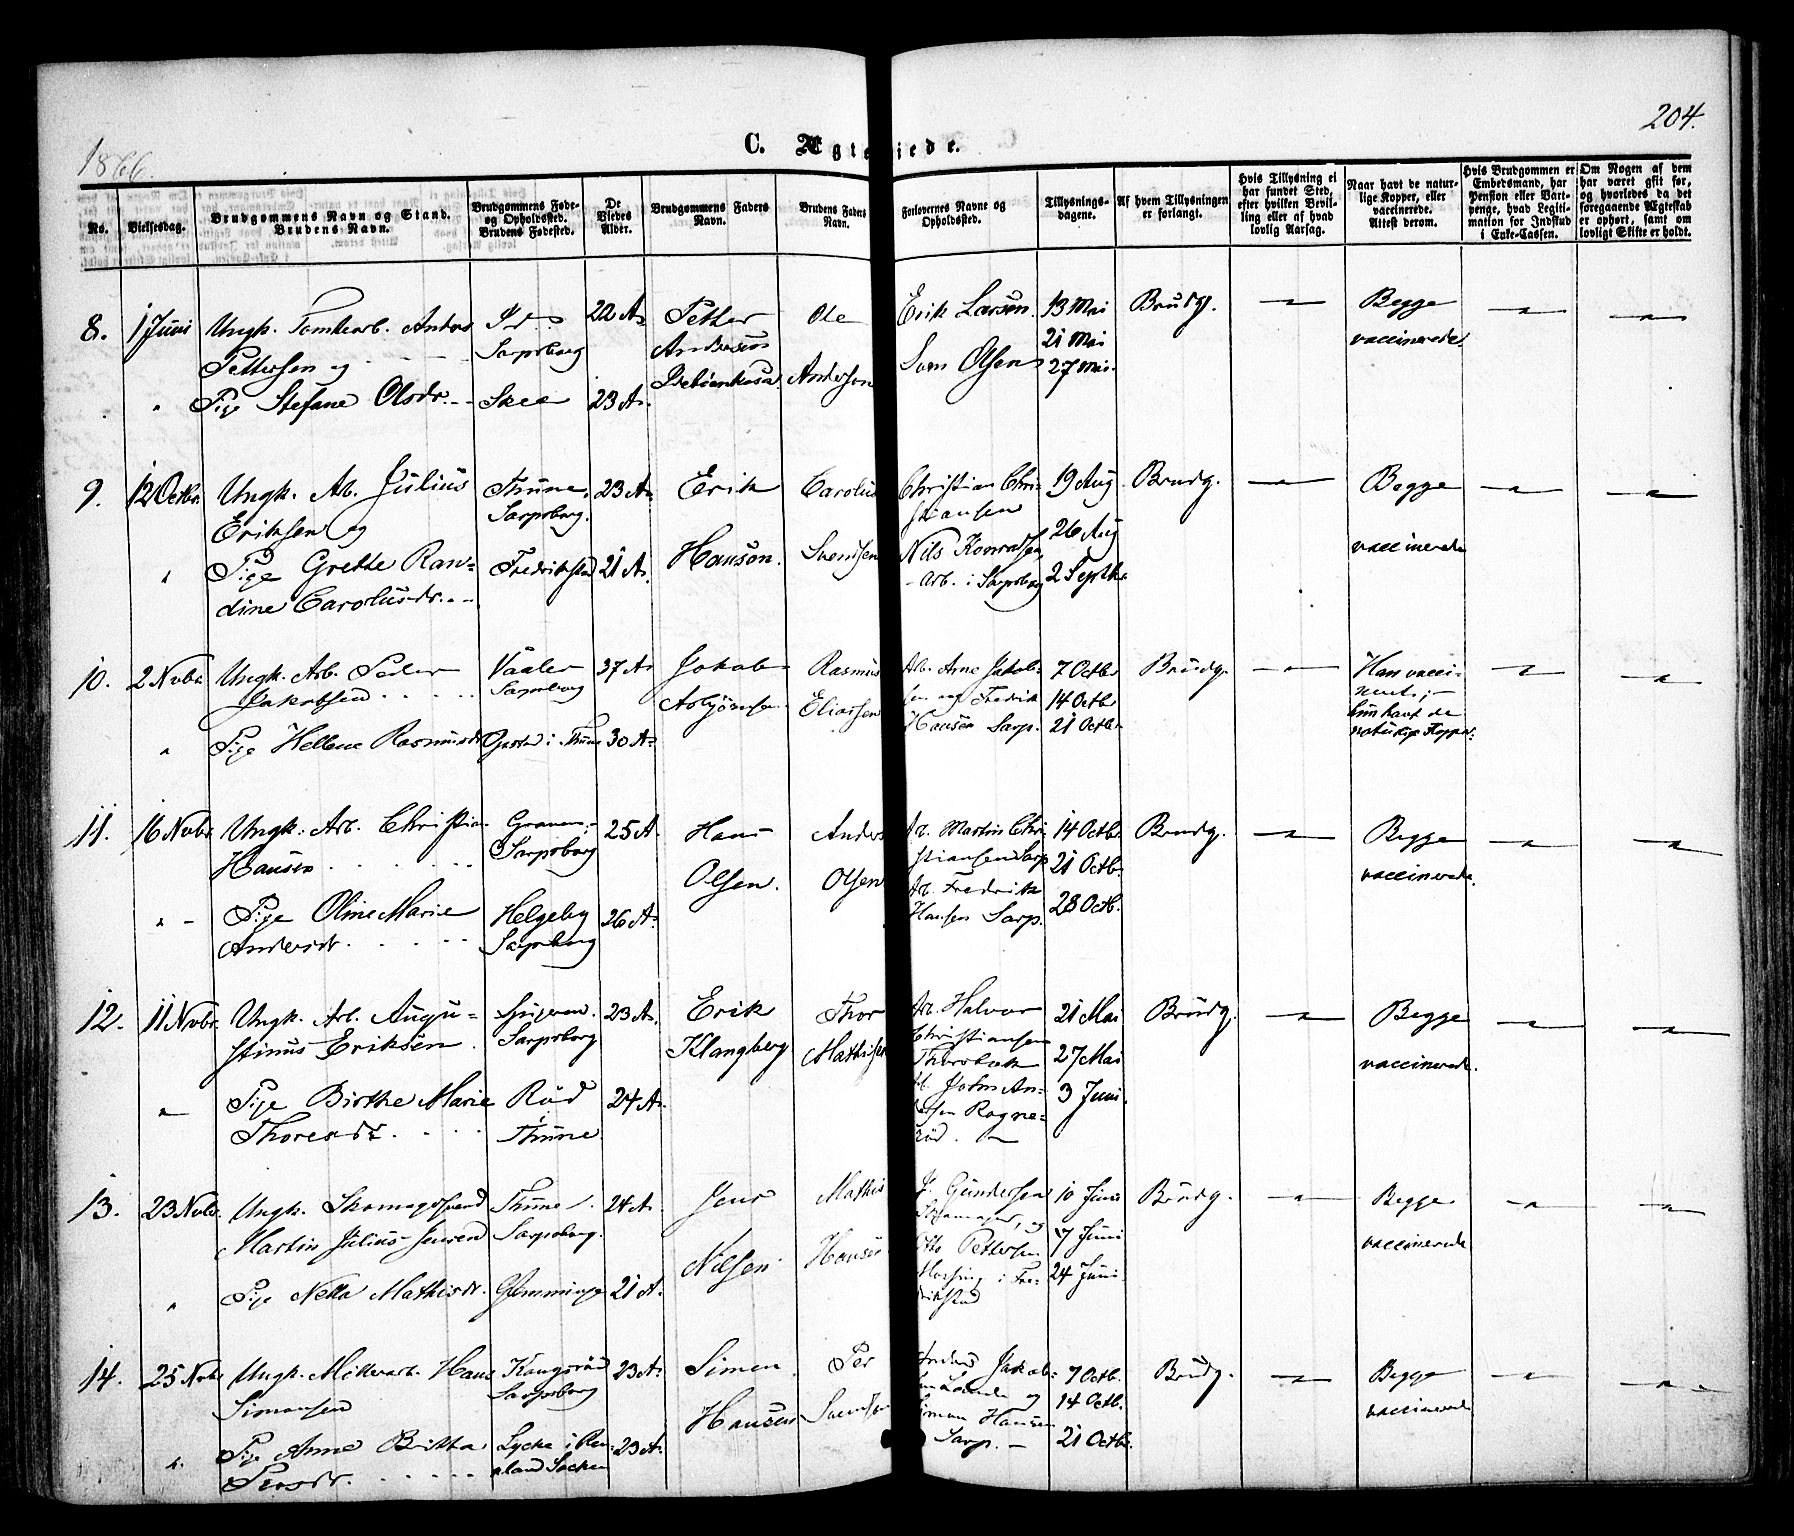 1866.
C. Ægteviede.
204.
No.
Vielsesdag.
Brudgommens Navn og Stand.
Brudens Navn.
Brudgommens Føde-
og Opholdssted.
Brudens Fødested.
De
Viedes
Alder.
Brudgommens Faders
Navn.
Brudens Faders
Navn.
Forlovernes Navne og
Opholdssted.
Tillysnings-
dagene.
Af hvem Tillysningen
er forlangt.
Hvis Tillysning ei
har fundet Sted,
efter hvilken Bevil-
ling eller af hvad
lovlig Aarsag.
Naar havt de natur-
lige Kopper, eller
vaccinerede.
Attest derom.
Hvis Brudgommen er
Embedsmand, har
Pension eller Vart-
penge, hvad Legiti-
mation for Indskud
i Enke-Cassen.
Om Nogen af dem
har været gift før,
og hvorledes da det
foregaaende Ægteskab
er ophørt, samt om
lovligt Skifte er holdt.
8. 1 Juni Ungk. Tomtearb. Anders 22 A. Petter Ole Erik Larsen 13 Mai Brudg. Begge
Sarpsborg Andersen 21 Mai vaccinerede.
Pettersen og Andersen Sven Olsen 27 Mai
" Pige Stefane Olsdr. Skee 23 A.
9. 12 Octbr. Ungk. Arb. Julius Thune. 23 A. Erik Carolus Christian Chri- 19 Aug Brudg. Begge
Eriksen og Sarpsborg. stiansen 26 Aug
" Pige Grethe Ran- Fredrikstad 21 A. Hansen. Svendsen Nils Konradsen 2 Septbr. vaccinerede
dine Carolusdr. Arb. i Sarpsborg
10. 2 Novbr. Ungk. Arb. Peder Vaaler 37 A. Jakob Rasmus Arb. Arne Jakob- 7 Octbr. Brudg. Han vacci-
Jakobsen Sarpsborg Asbjörnsen Eliassen sen og Fredrik 14 Octbr. neret;
" Pige Hellene Rasmusdr. i Thune 30 A. Hansen Sarp. 21 Octbr. hun havt de
naturlige Kopper.
11. 16 Novbr. Ungk. Arb. Christian 25 A. Hans Anders Arb. Martin Chri- 14 Octbr. Brudg. Begge
Hansen Sarpsborg Olsen. Olsen stiansen Sarp 21 Octbr. vaccinerede.
" Pige Oline Marie Helgeby 26 A. Arb. Fredrik 28 Octb.
Andersdr. Sarpsborg Hansen Sarp.
12. 11 Novbr. Ungk. Arb. Augu- 23 A. Erik Thor Arb. Halvor 21 Mai Brudg. Begge
stinus Eriksen. Sarpsborg Klangberg Mathisen Christiansen 27 Mai vaccinerede.
" Pige Birthe Marie Röd 24 A. John An- 3 Juni.
Thoresdr. Thune. Ragne-
röd.
13. 23 Novbr. Ungk. Skomagersvend Thune. 24 A. Jens Mathis J. Gundersen 10 Juni Brudg. Begge
Martin Julius Jensen Sarpsborg. Nilsen. Hansen Skomager, og 17 Juni vaccinerede
" Pige Netta Mathisdr. Glemminge 21 A. Otto Pettersen 24 Juni.
i Fre-
drikstad
14. 25 Novbr. Ungk. Möllerarb. Hans 23 A. Simen Per Anders Jakob- 7 Octb. Brudg. Begge
Simonsen Sarpsborg Hansen Svendsen og 14 Octb. vaccinerede
" Pige Anne Britta Lycke i 23 A. Simon Hansen 21 Octbr.
Persdr. Socken Sarp.